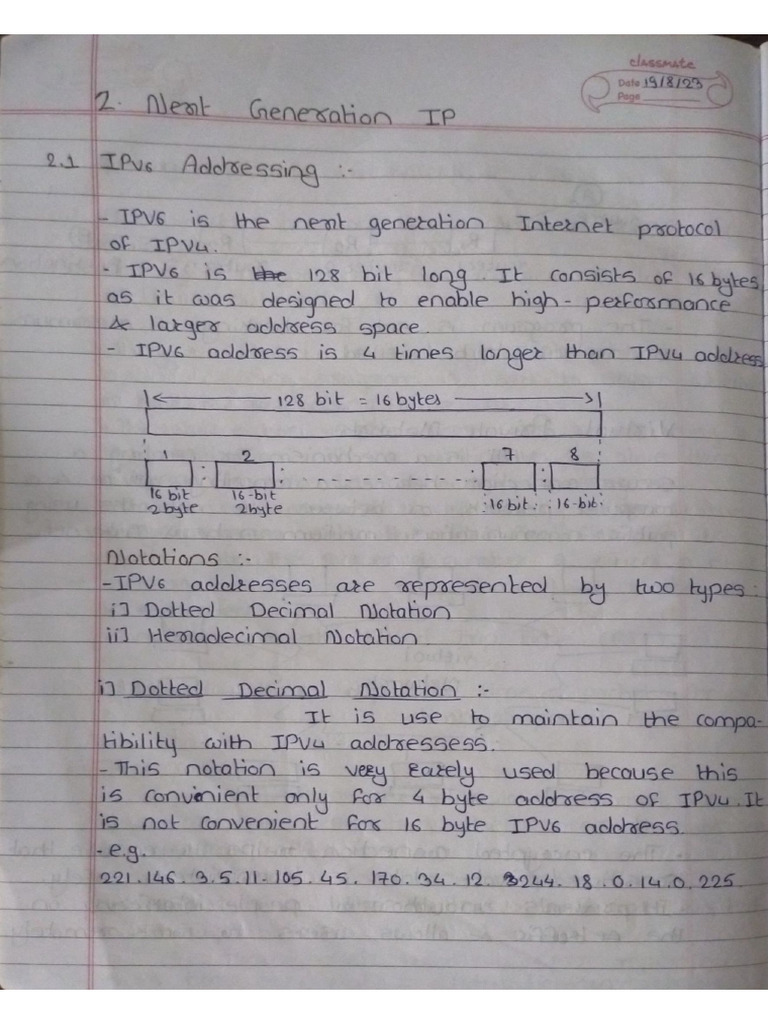 classmate
Date 19/8/23
Page
2. Next Generation IP
2.1 IPV6 Addressing :-
- IPV6 is the next generation Internet protocol
of IPV4.
- IPV6 is the 128 bit long. It consists of 16 bytes
as it was designed to enable high-performance
& larger address space.
- IPV6 address is 4 times longer than IPV4 address
128 bit = 16 bytes
1 : 2 : - - - - - - - - - - - - : 7 : 8
16 bit 16-bit :16 bit: :16-bit:
2 byte 2 byte
Notations :-
- IPV6 addresses are represented by two types:
i] Dotted Decimal Notation
ii] Hexadecimal Notation
i] Dotted Decimal Notation :-
It is use to maintain the compa-
tibility with IPV4 addressess.
- This notation is very rarely used because this
is convinient only for 4 byte address of IPV4. It
is not convenient for 16 byte IPV6 address.
- e.g.
221.146.3.5.11.105.45.170.34.12.3244.18.0.14.0.225